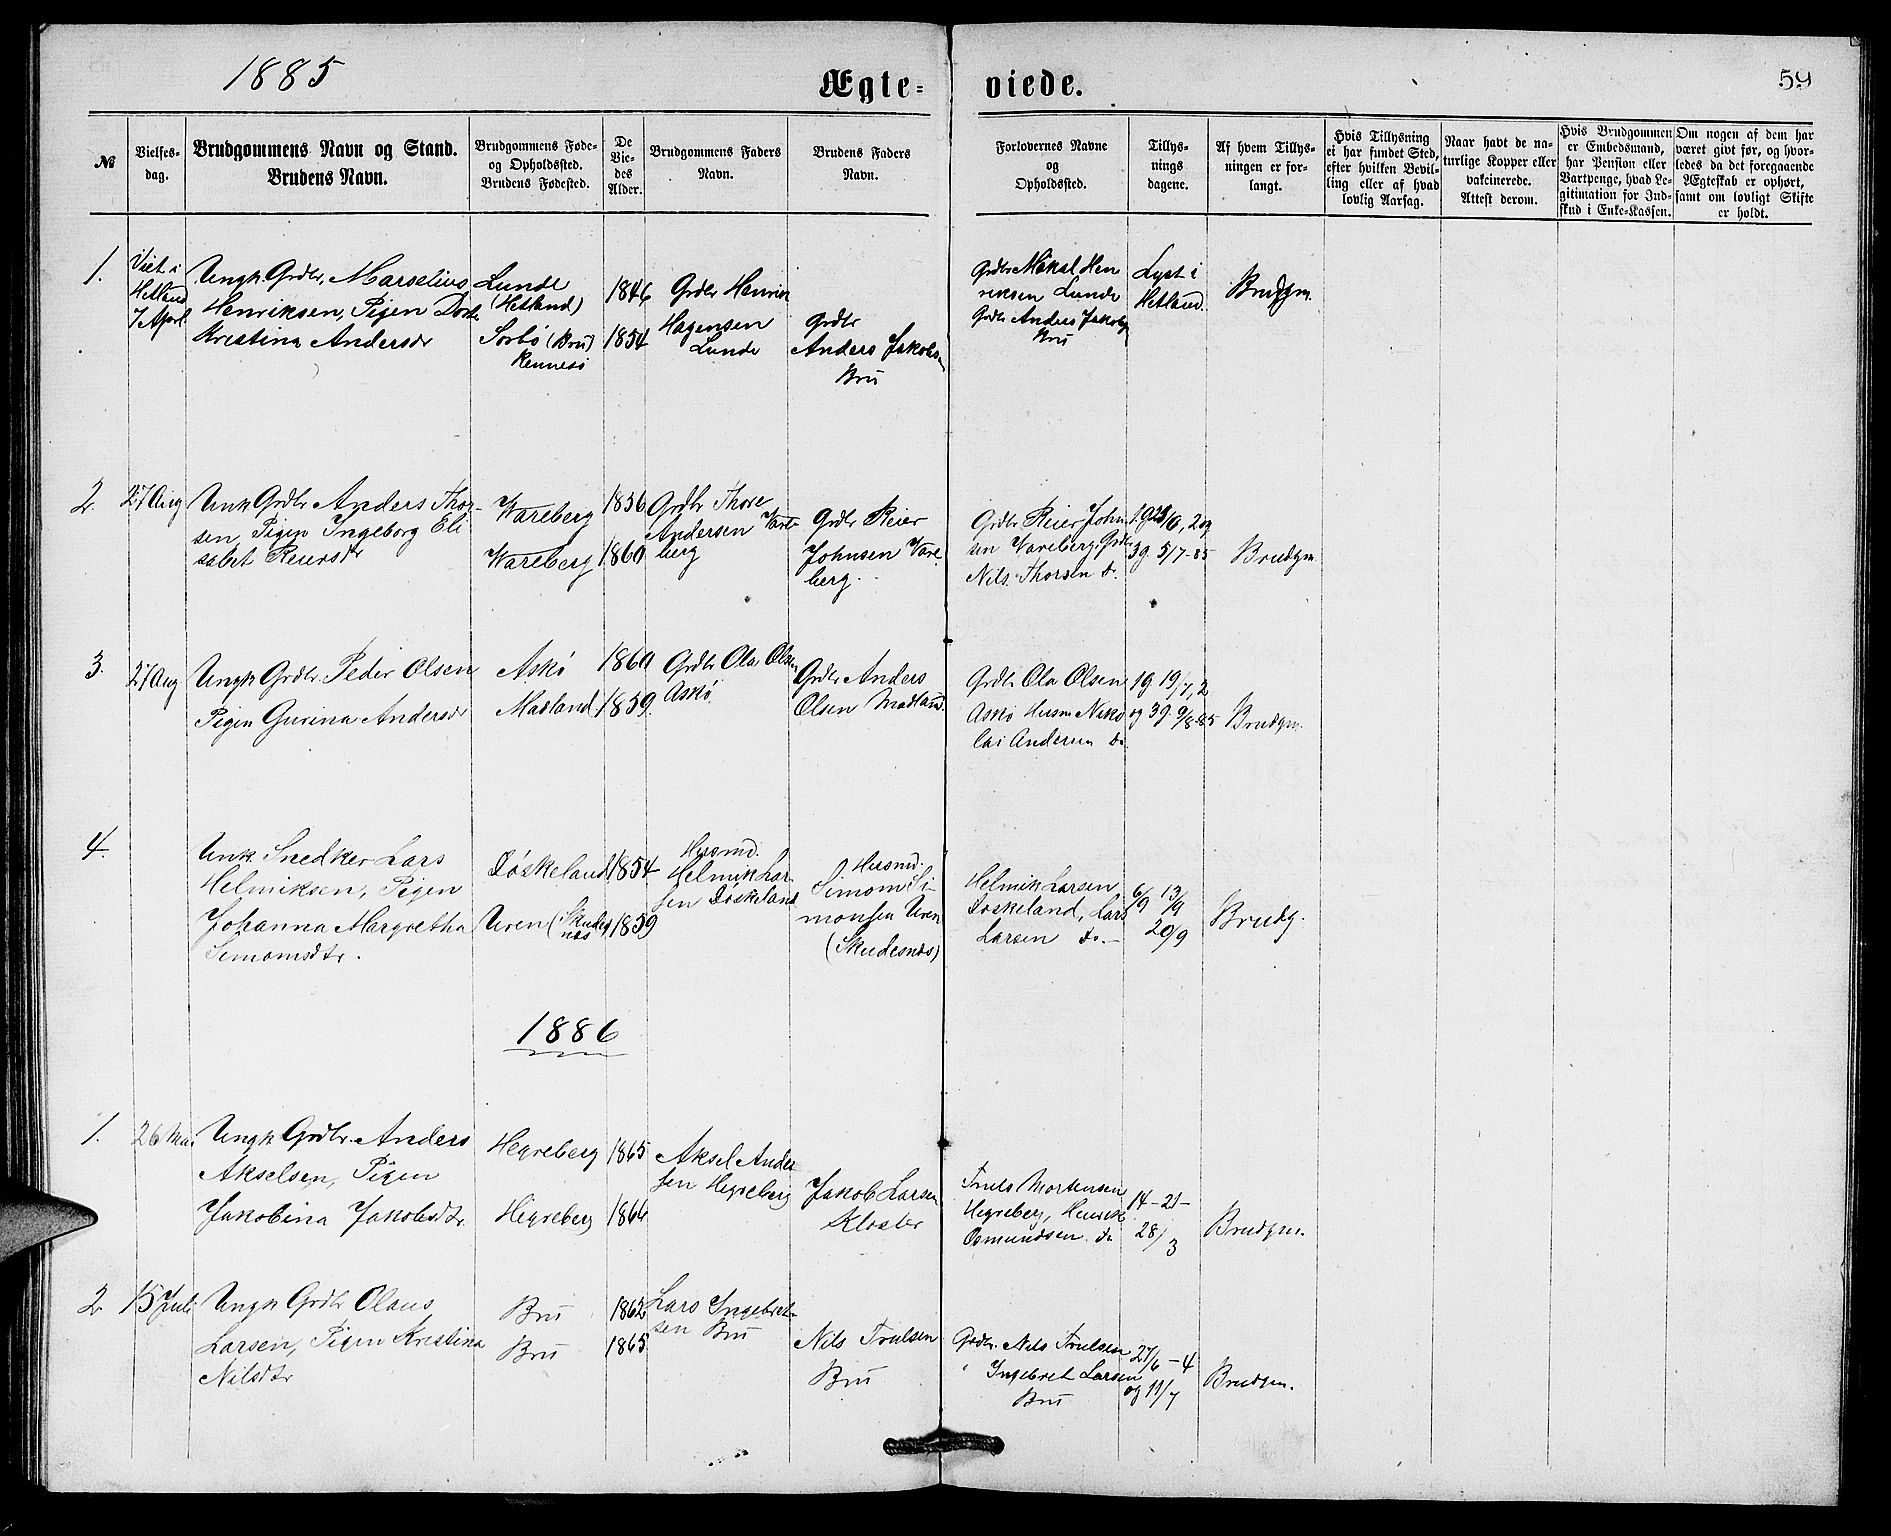 1885
Ægte-
viede.
59
№
Vielses-
dag.
Brudgommens Navn og Stand.
Brudens Navn.
Brudgommens Føde-
og Opholdssted.
Brudens Fødested.
De
Vie-
des
Alder.
Brudgommens Faders
Navn.
Brudens Faders
Navn.
Forlovernes Navne
og
Opholdssted.
Tillys-
nings
dagene.
Af hvem Tillys-
ningen er for-
langt.
Hvis Tillysning
ei har fundet Sted,
efter hvilken Bevil-
ling eller af hvad
lovlig Aarsag.
Naar havt de na-
turlige Kopper eller
vakcinerede.
Attest derom.
Hvis Brudgommen
er Embedsmand,
har Pension eller
Vartpenge, hvad Le-
gitimation for Ind-
skud i Enke-Kassen.
Om nogen af dem har
været givt før, og hvor-
ledes da det foregaaende
Ægteskab er ophørt,
samt om lovligt Skifte
er holdt.
1.
Viet i
Hetland
7 April.
Ungk. Grdbr. Marselius
Henriksen, Pigen Dorte
Kristina Andersdr
Lunde
(Hetland)
Sorbø (Bru)
Rennesø
1846
1854
Grdbr Henrik
Hagensen
Lunde
Grdbr
Anders Jakobsen
Bru
Grdbr Mikal Hen
riksen Lunde
Grdbr Anders Jakobs
Bru
Lyst i
Hetland.
Brudgm.
2.
27 Aug
Unk Grdbr Anders Thor-
sen, Pigen Ingeborg Eli
sabet Reiersdr
Wareberg
Wareberg
1856
1860
Grdbr Thore
Andersen Vare
berg
Grdbr Reier
Johnsen Vare
berg.
Grdbr Reier John
sen Vareberg, Grdbr
Nils Thorsen do.
1g 28/6, 2 og
3g. 5/7-85
Brudgm.
3.
27 Aug
Ungk Grdbr. Peder Olsen
Pigen Gurina Andersdr
Askø
Madland
1860
1859.
Grdbr Ola Olsen
Askø
Grdbr Anders
Olsen Madland.
Grdbr Ola Olsen
Askø Husm Niko
lai Andersen do.
1g 19/7, 2
og 3g. 9/8-85
Brudgm.
4.
Unk. Snedker Lars
Helmiksen, Pigen
Johanna Margretha
Simonsdtr.
Døskeland
Uren (Skudes
næs)
1854
1859
Husmd.
Helmik Lar
sen Døskeland
Husmd.
Simon Si-
monsen Uren
(Skudesnæs)
Helmik Larsen
Døskeland, Lars
Larsen do.-
6/9 13/9
20/9
Brudg.
1886
1.
26 Mai
Ungk Grdbr. Anders
Akselsen, Pigen
Jakobina Jakobsdtr.
Hegreberg
Hegreberg
1865
1866
Aksel Ander
sen Hegreberg
Jakob Larsen
Kloster
Truls Mortensen
Hegreberg, Henrik
Osmundsen do
14-21-
28/3
Brudgm.
2
15 Juli
Ungk Grdbr Olaus
Larsen, Pigen Kristina
Nilsdtr
Bru
Bru
1862
1865
Lars Ingebret-
sen Bru
Nils Trulsen
Bru
Grdbr. Nils Trulsen
" Ingebret Larsen
Bru
27/6-4
og 11/7
Brudgm.